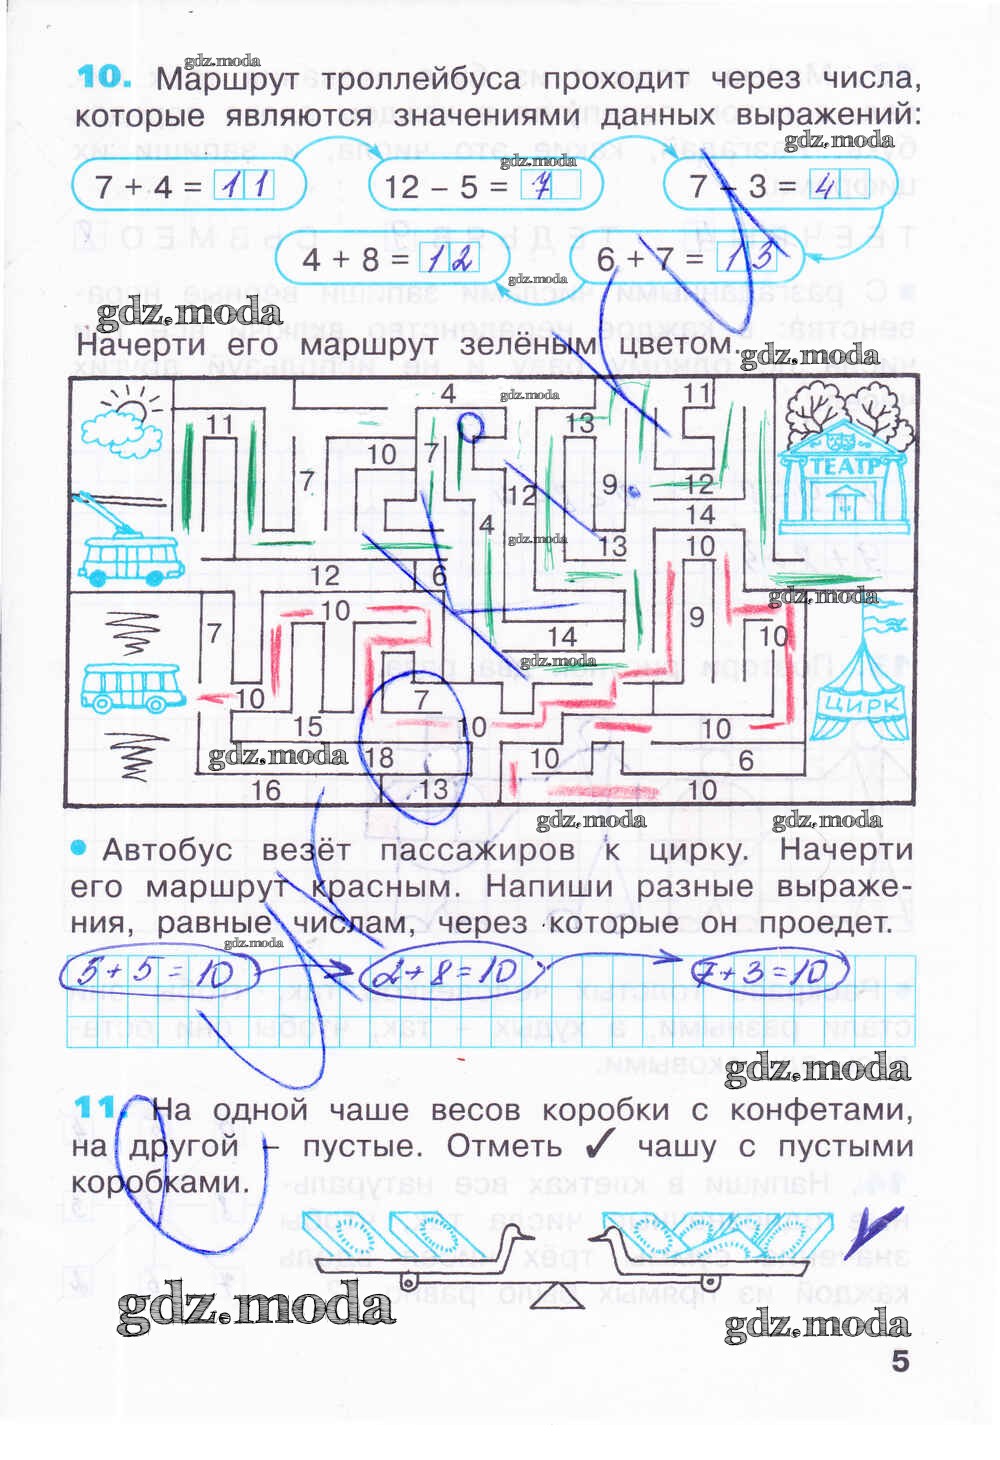 gdz.moda
10. Маршрут троллейбуса проходит через числа,
которые являются значениями данных выражений:
gdz.moda
gdz.moda
7 + 4 = 11
12 – 5 = 7
7 – 3 = 4
4 + 8 = 12
6 + 7 = 13
gdz.moda
gdz.moda
Начерти его маршрут зелёным цветом.
gdz.moda
4
gdz.moda
11
11
13
10
7
7
9
12
ТЕАТР
12
4
14
gdz.moda
13
10
12
6
gdz.moda
10
7
9
14
10
gdz.moda
10
7
ЦИРК
15
10
10
gdz.moda
18
10
6
16
13
10
gdz.moda
gdz.moda
• Автобус везёт пассажиров к цирку. Начерти
его маршрут красным. Напиши разные выраже-
ния, равные числам, через которые он проедет.
gdz.moda
5+5=10
2+8=10
7+3=10
gdz.moda
11. На одной чаше весов коробки с конфетами,
на другой – пустые. Отметь ✓ чашу с пустыми
коробками.
✓
gdz.moda
gdz.moda
5